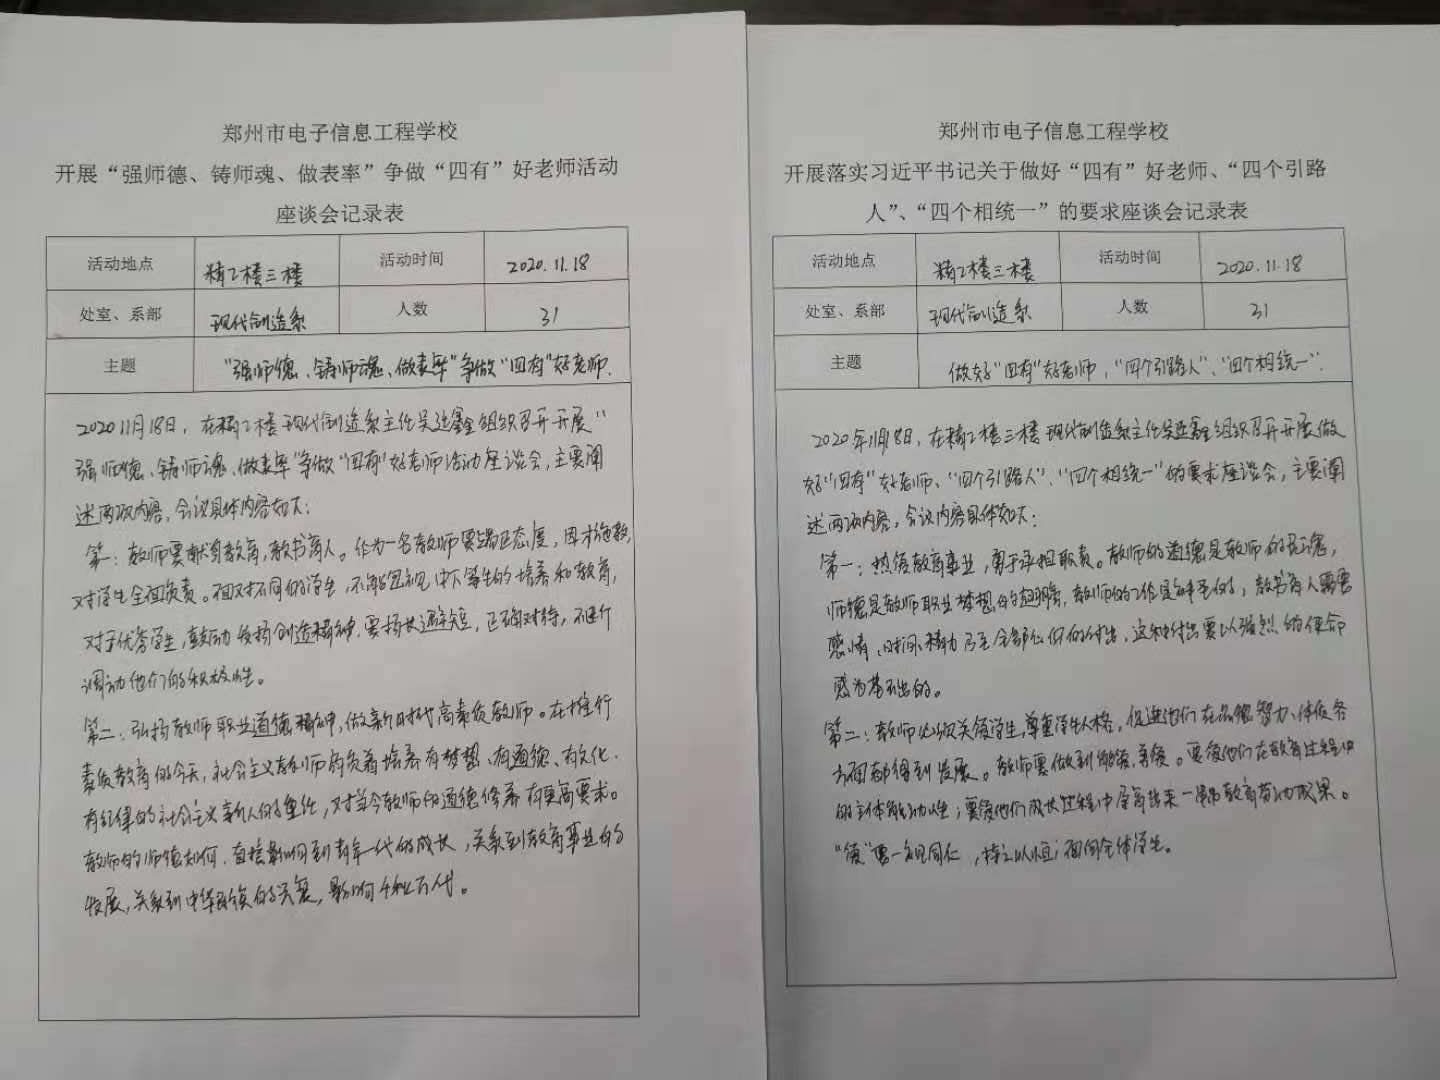 郑州市电子信息工程学校
开展“强师德、铸师魂、做表率”争做“四有”好老师活动
座谈会记录表
活动地点 精工楼三楼 活动时间 2020.11.18
处室、系部 现代制造系 人数 31
主题 “强师德、铸师魂、做表率”争做“四有”好老师.
2020 11月18日，在精工楼现代制造系主任吴 鑫组织召开开展“
强师德、铸师魂、做表率”争做“四有”好老师活动座谈会，主要阐
述两项内容，会议具体内容如下：
第一：教师要献身教育，教书育人。作为一名教师要端正态度，因才施教，
对学生全面负责。面对不同的学生，不能忽视中下等生的培养和教育，
对于优秀学生，鼓励发扬创造精神，要扬长避短，正确对待，不 
调动他们的积极性。
第二：弘扬教师职业道德精神，做新时代高素质教师。在推行
素质教育的今天，社会主义教师肩负着培养有梦想、有道德、有文化、
有纪律的社会主义新人的重任，对当今教师的道德修养有更高要求。
教师的师德如何，直接影响到青年一代的成长，关系到教育事业的
发展，关系到中华民族的兴衰，影响千秋万代。
郑州市电子信息工程学校
开展落实习近平书记关于做好“四有”好老师、“四个引路
人”、“四个相统一”的要求座谈会记录表
活动地点 精工楼三楼 活动时间 2020.11.18
处室、系部 现代制造系 人数 31
主题 做好“四有”好老师，“四个引路人”、“四个相统一”.
2020年11月18日，在精工楼三楼现代制造系主任吴 鑫组织召开开展做
好“四有”好老师、“四个引路人”、“四个相统一”的要求座谈会，主要阐
述两项内容，会议内容具体如下：
第一：热爱教育事业，勇于承担职责。教师的道德是教师的灵魂，
师德是教师职业梦想的翅膀，教师的工作是神圣的，教书育人需要
感情、时间、精力乃至全部心血的付出，这种付出要以强烈的使命
感为基础的。
第二：教师必须关爱学生，尊重学生人格，促进他们在品德、智力、体质各
方面都得到发展。教师要做到能爱、善爱。要爱他们在教育过程中
的主体能动性；要爱他们成长过程中孕育结果一串串教育劳动成果。
“爱”要一视同仁，持之以恒；面向全体学生。